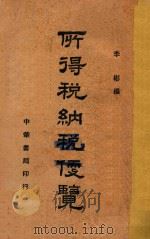 李彬編
所得稅納稅便覽
中華書局印行